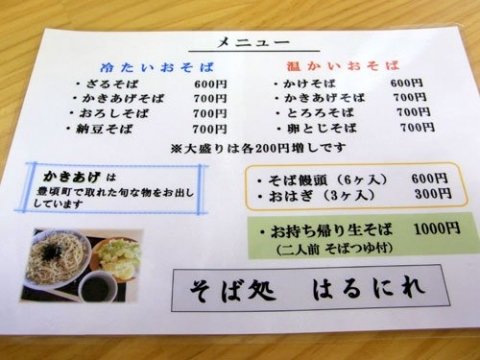 メニュー
冷たいおそば
・ざるそば 600円
・かきあげそば 700円
・おろしそば 700円
・納豆そば 700円
温かいおそば
・かけそば 600円
・かきあげそば 700円
・とろろそば 700円
・卵とじそば 700円
※大盛りは各200円増しです
かきあげ は
豊頃町で取れた旬な物をお出し
しています
・そば饅頭（6ヶ入） 600円
・おはぎ（3ヶ入） 300円
・お持ち帰り生そば 1000円
（二人前 そばつゆ付）
そば処 はるにれ